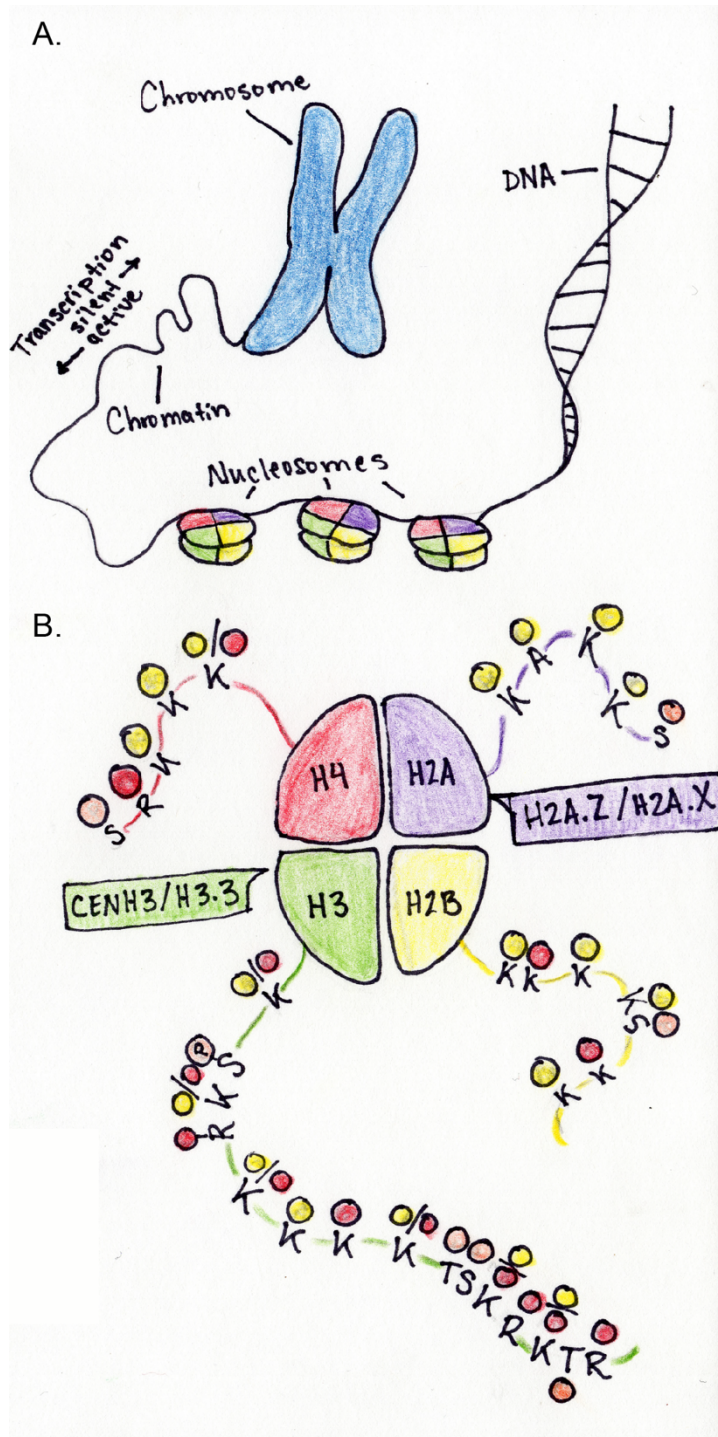 A.
Chromosome
DNA
Transcription
silent
active
Chromatin
Nucleosomes
B.
K
K
K
R
S
K
A
K
K
S
H4
H2A
H2A.Z/H2A.X
CENH3/H3.3
H3
H2B
K
P
S
K
R
K
K
K
K
T
S
K
R
K
T
R
K
K
K
K
S
K
K